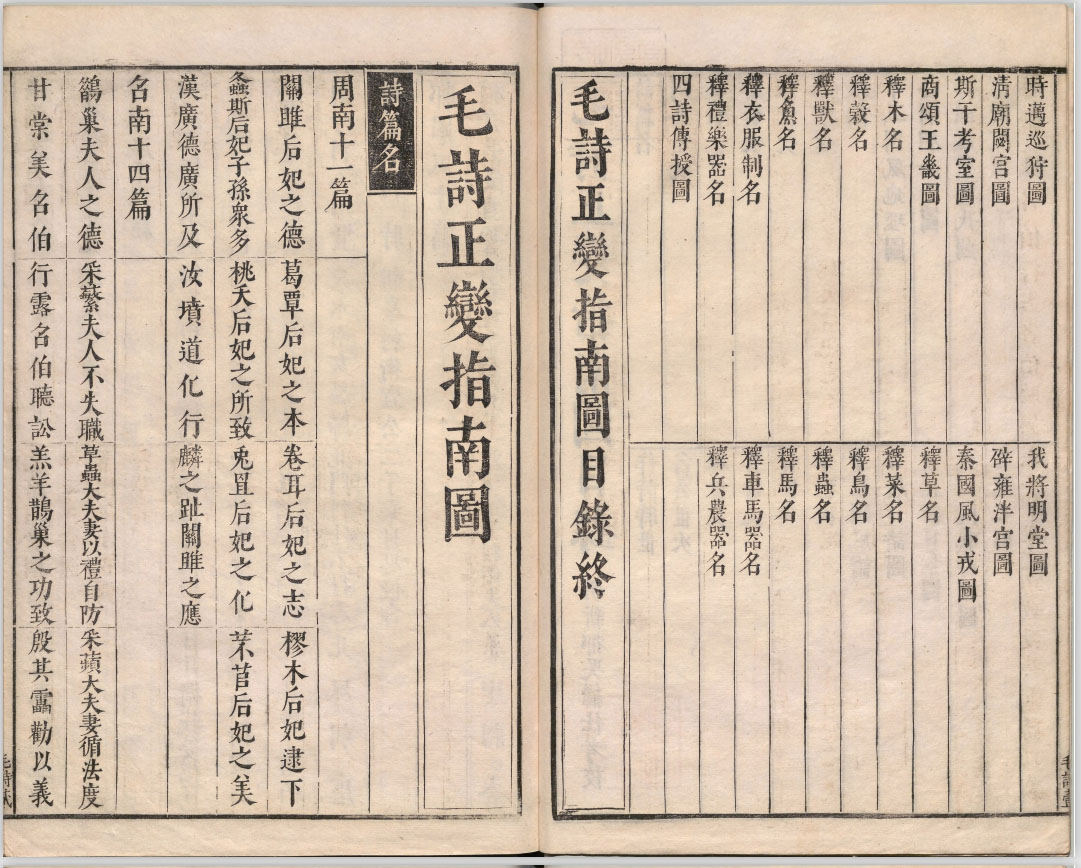 時邁巡狩圖
清廟閟宫圖
斯干考室圖
商頌王畿圖
釋木名
釋穀名
釋獸名
釋魚名
釋衣服制名
釋禮樂器名
四詩傳授圖
我將明堂圖
辟雍泮宫圖
秦國風小戎圖
釋草名
釋菜名
釋鳥名
釋蟲名
釋馬名
釋車馬器名
釋兵農器名
毛詩正變指南圖目錄終
毛詩正變指南圖
詩篇名
周南十一篇
關雎后妃之德 葛覃后妃之本 卷耳后妃之志 樛木后妃逮下
螽斯后妃子孫衆多 桃夭后妃之所致 兎罝后妃之化 芣苢后妃之美
漢廣德廣所及 汝墳道化行 麟之趾關雎之應
名南十四篇
鵲巢夫人之德 采蘩夫人不失職 草蟲大夫妻以禮自防 采蘋大夫妻循法度
甘棠美名伯 行露名伯聽訟 羔羊鵲巢之功致 殷其靁勸以義